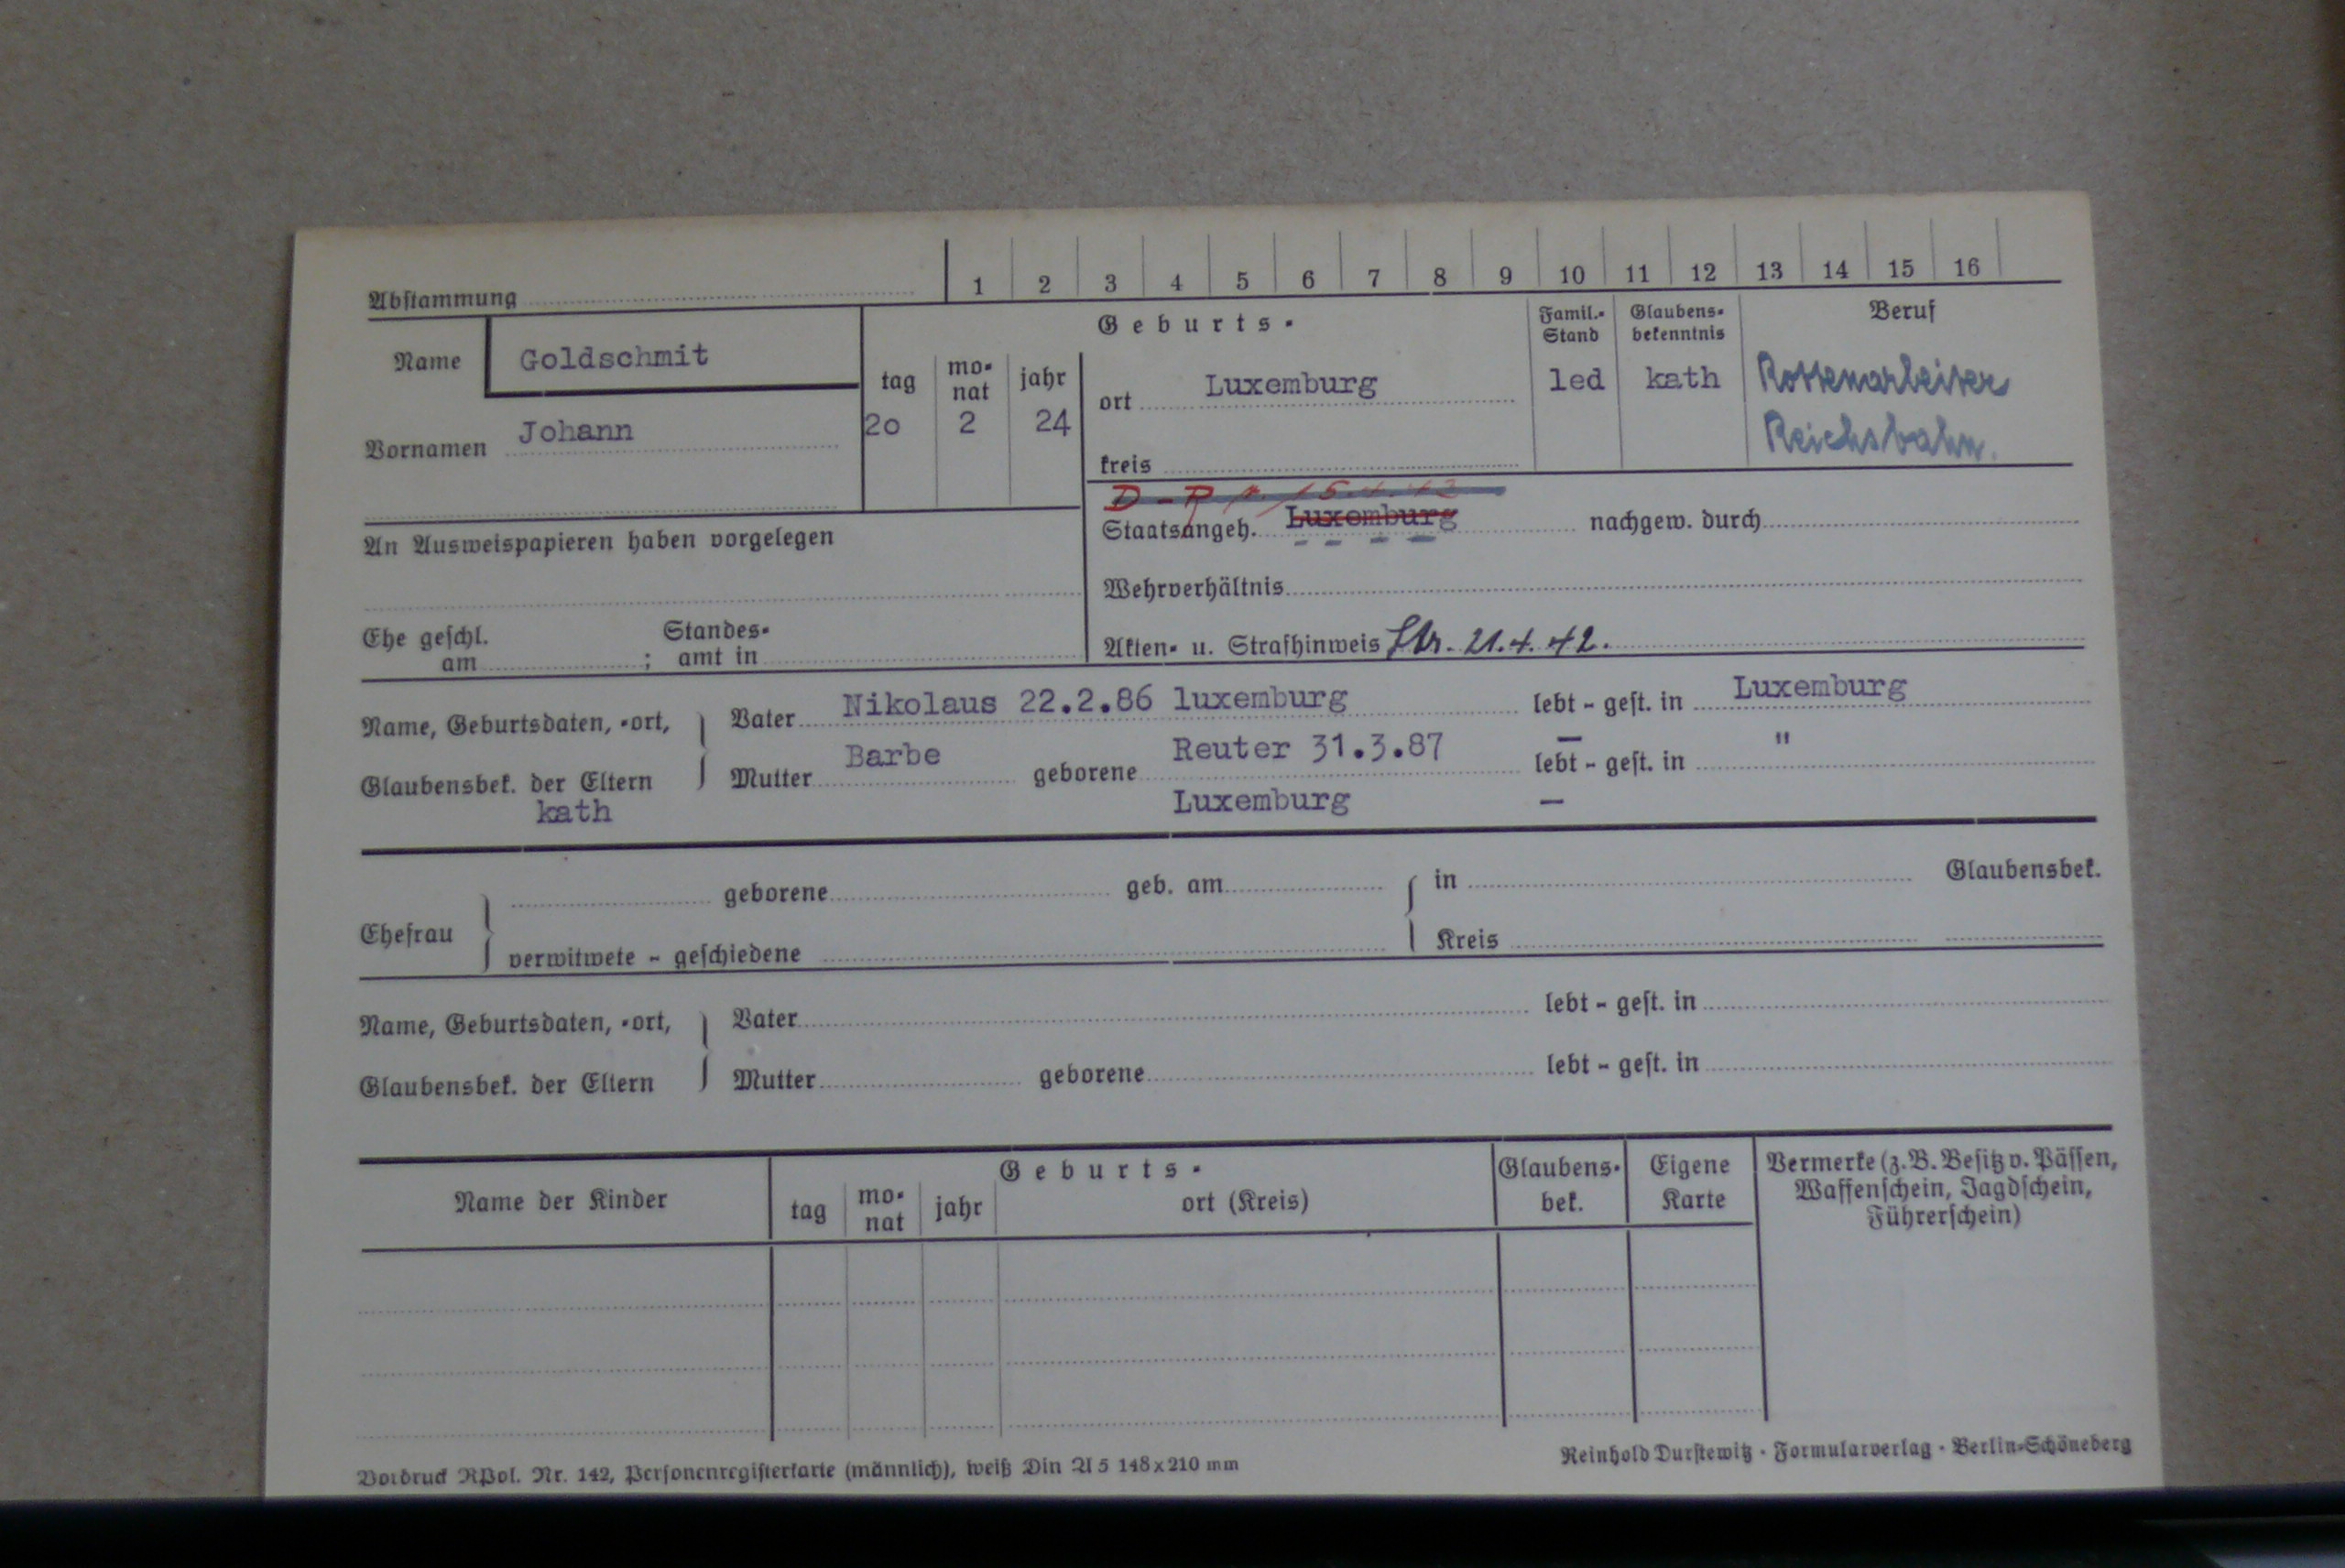 Abstammung 1 2 3 4 5 6 7 8 9 10 11 12 13 14 15 16
Name Goldschmit
Vornamen Johann
Geburts-
tag monat jahr
20 2 24
ort Luxemburg
kreis
Famil.-Stand
led
Glaubensbekenntnis
kath
Beruf
Rottenarbeiter
Reichsbahn.
An Ausweispapieren haben vorgelegen
D-R 15.4.42
Staatsangeh. Luxemburg nachgew. durch
Wehrverhältnis
Ehe geschl. am ; Standesamt in
Akten- u. Strafhinweis 21.4.42.
Name, Geburtsdaten, -ort, Vater Nikolaus 22.2.86 luxemburg lebt - gest. in Luxemburg
Glaubensbek. der Eltern Mutter Barbe geborene Reuter 31.3.87 lebt - gest. in "
kath Luxemburg
Ehefrau geborene geb. am in Glaubensbek.
verwitwete - geschiedene Kreis
Name, Geburtsdaten, -ort, Vater lebt - gest. in
Glaubensbek. der Eltern Mutter geborene lebt - gest. in
Name der Kinder
Geburts-
tag monat jahr ort (Kreis)
Glaubensbek.
Eigene Karte
Vermerke (z. B. Besitz v. Pässen,
Waffenschein, Jagdschein,
Führerschein)
Vordruck RPol. Nr. 142, Personenregisterkarte (männlich), weiß Din A 5 148x210 mm
Reinhold Durstewitz · Formularverlag · Berlin-Schöneberg